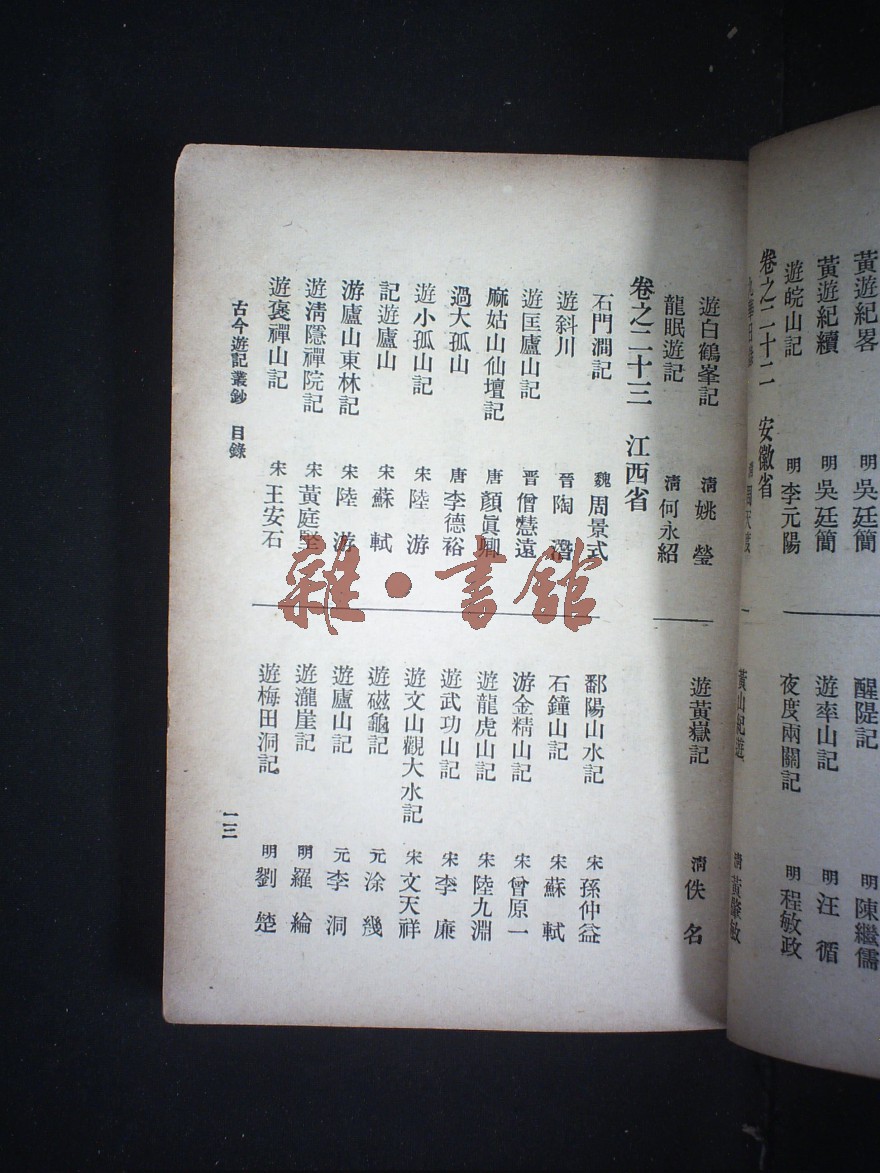 黃遊紀畧 明 吳廷簡
黃遊紀續 明 吳廷簡
遊皖山記 明 李元陽
卷之二十二 安徽省
醒隄記 明 陳繼儒
遊率山記 明 汪循
夜度兩關記 明 程敏政
黃山紀遊 清 黃肇敏
遊白鶴峯記 清 姚瑩
龍眠遊記 清 何永紹
遊黃嶽記 清 佚名
卷之二十三 江西省
石門澗記 魏 周景式
遊斜川 晉 陶潛
遊匡廬山記 晉 僧慧遠
麻姑山仙壇記 唐 顏眞卿
過大孤山 唐 李德裕
遊小孤山記 宋 陸游
記遊廬山 宋 蘇軾
游廬山東林記 宋 陸游
遊淸隱禪院記 宋 黃庭堅
遊褒禪山記 宋 王安石
鄱陽山水記 宋 孫仲益
石鐘山記 宋 蘇軾
游金精山記 宋 曾原一
遊龍虎山記 宋 陸九淵
遊武功山記 宋 李廉
遊文山觀大水記 宋 文天祥
遊磁龜記 元 涂幾
遊廬山記 元 李洞
遊瀧崖記 明 羅綸
遊梅田洞記 明 劉楚
古今遊記叢鈔 目錄
一三
雜·書館